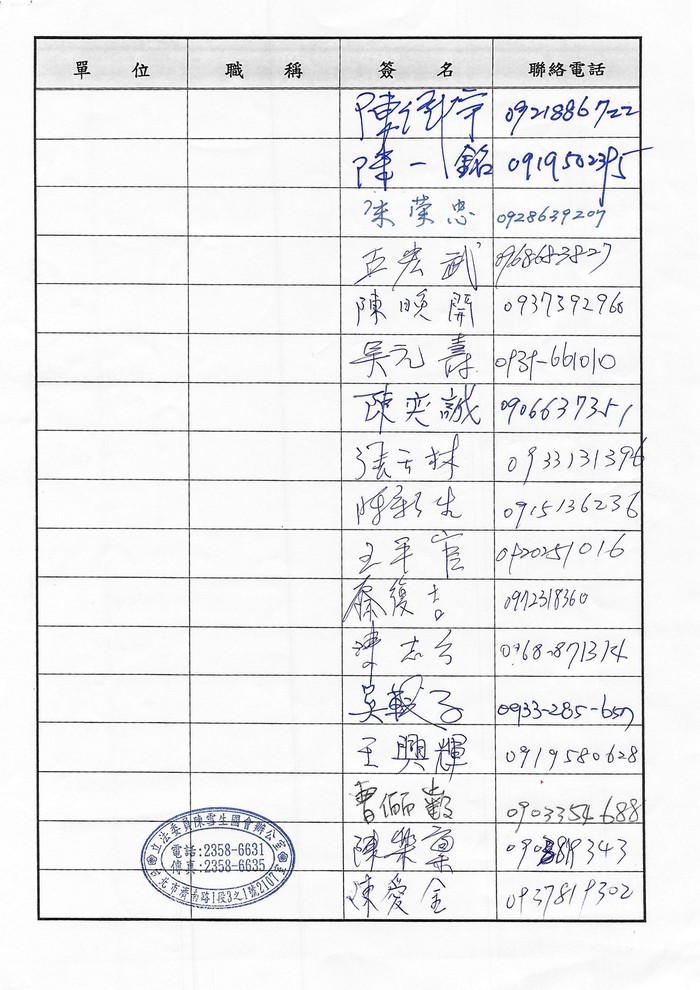 單 位 職 稱 簽 名 聯絡電話
陳 0921886722
陳一銘 0919502395
榮忠 0928639207
宏武 0968683827
陳 開 0937392960
吳元壽 0939-661010
陳奕誠 0906637351
張 林 0933131396
陳 0915136236
王平官 0920251016
復吉 0972318360
陳志 0968-871314
吳 子 0933-285-657
王興輝 0919580628
曹 0903354688
陳 343
陳愛金 0937819302
立法委員陳雪生國會辦公室
電話:2358-6631
傳真:2358-6635
台北市濟南路1段3之1號2107室